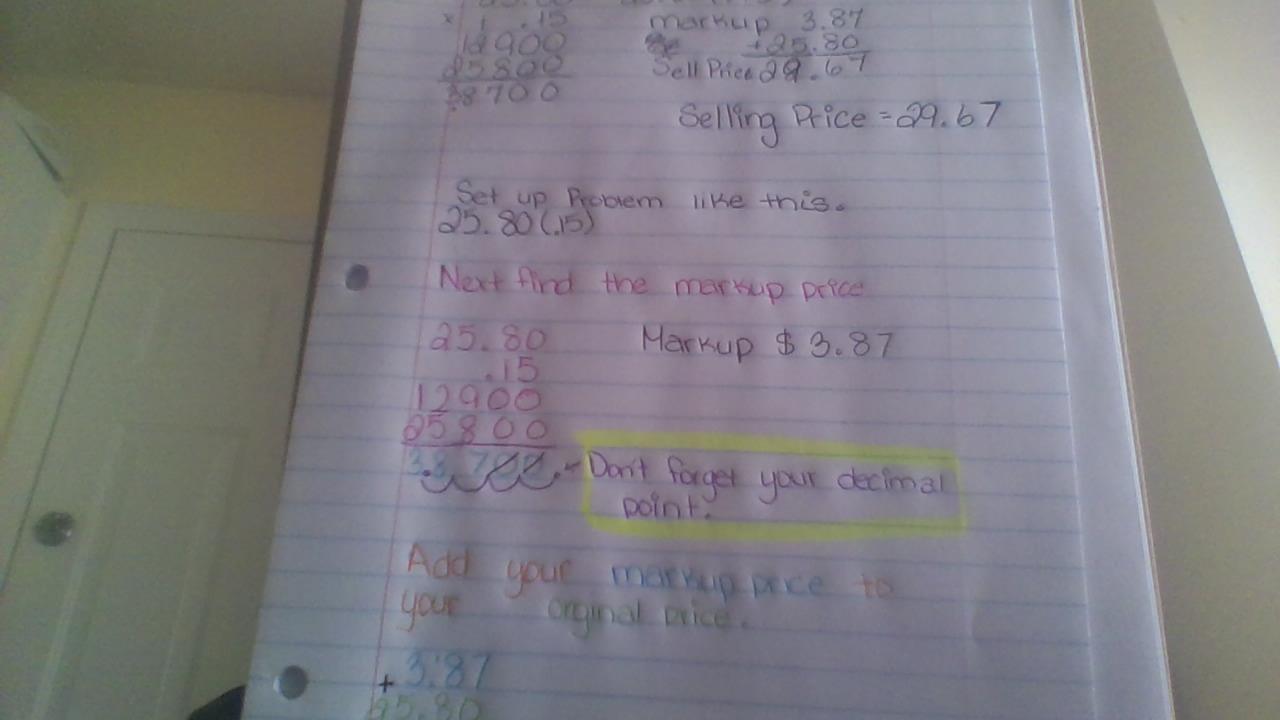 x 1 .15 markup 3.87
12900 +25.80
25800 Sell Price 29.67
38700
Selling Price = 29.67
Set up Problem like this.
25.80(.15)
Next find the markup price
25.80 Markup $ 3.87
.15
12900
25800
3.8700 - Don't forget your decimal
point.
Add your markup price to
your orginal price.
+ 3.87
25.80